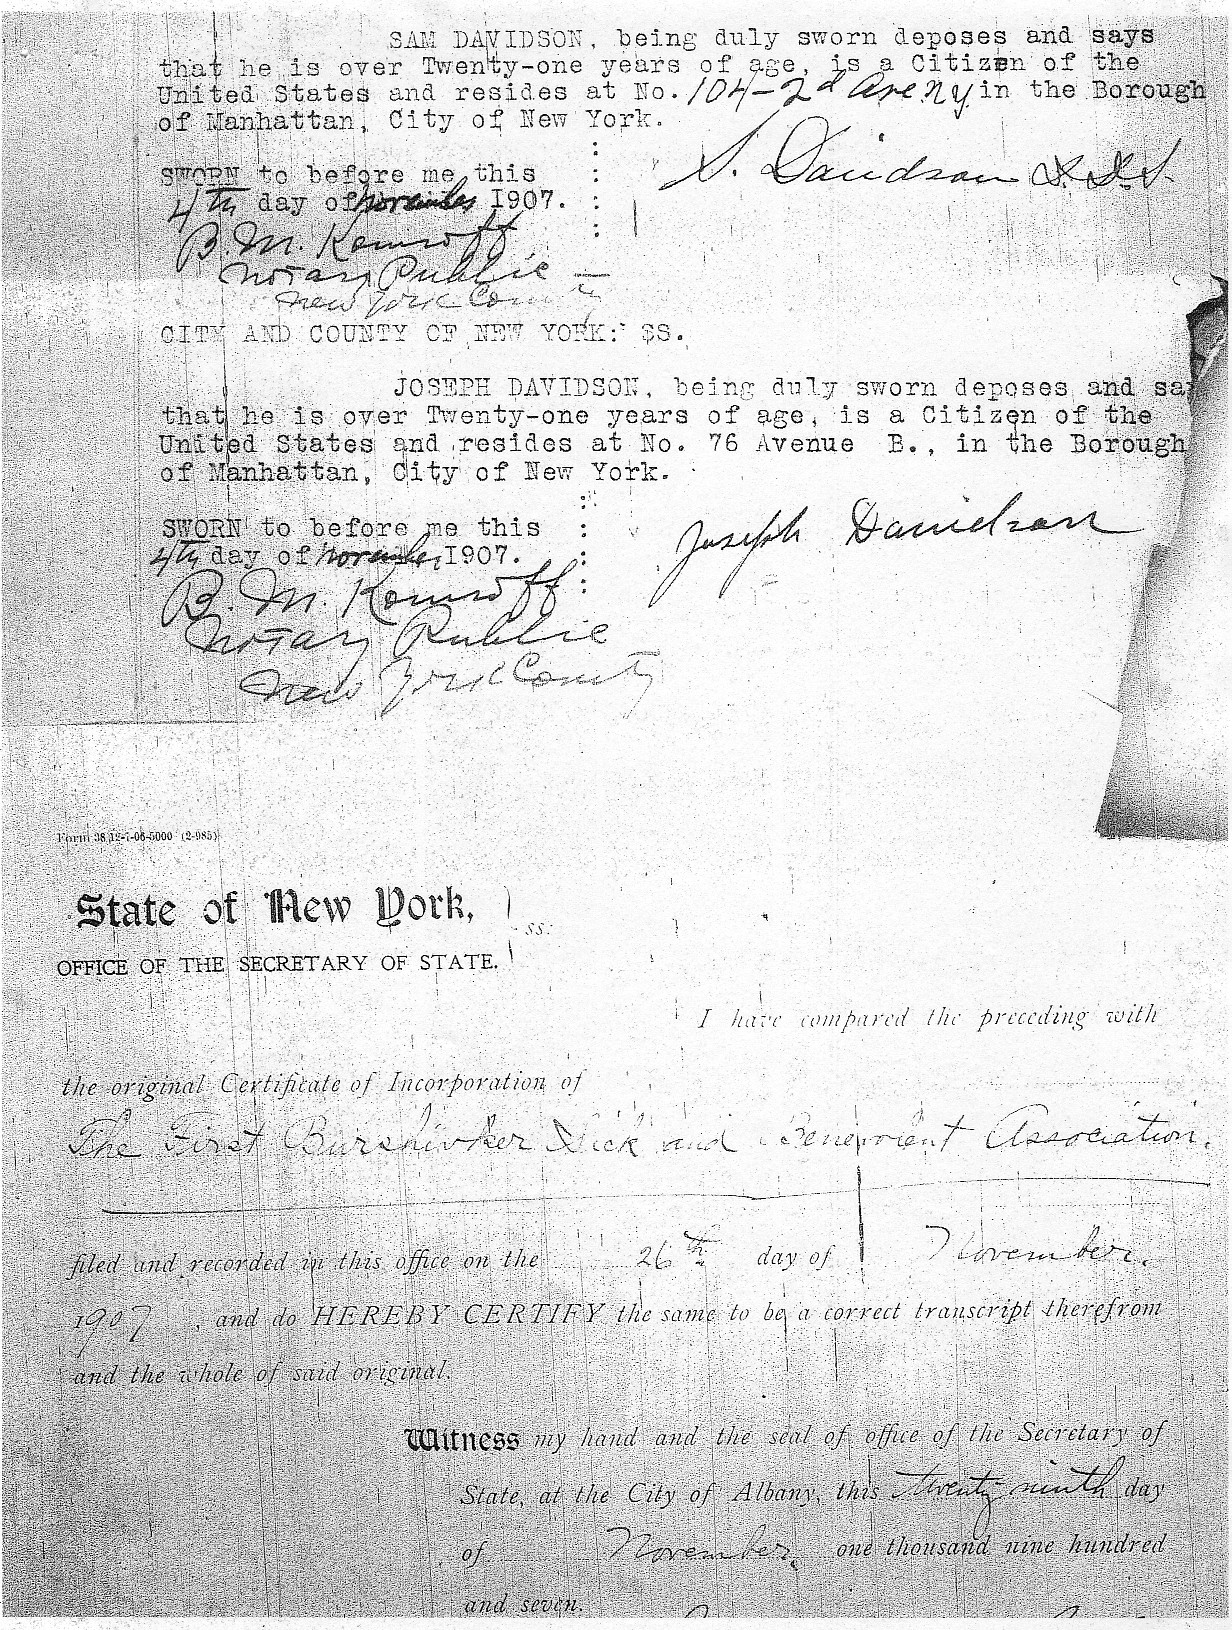 SAM DAVIDSON, being duly sworn deposes and says
that he is over Twenty-one years of age, is a Citizen of the
United States and resides at No. 104-2d Ave. N.Y. in the Borough
of Manhattan, City of New York.
SWORN to before me this :
S. Davidson D.D.S.
4th day of November 1907. :
B. M. Komroff :
Notary Public
New York County
CITY AND COUNTY OF NEW YORK: SS.
JOSEPH DAVIDSON, being duly sworn deposes and sa
that he is over Twenty-one years of age, is a Citizen of the
United States and resides at No. 76 Avenue B., in the Borough
of Manhattan, City of New York.
SWORN to before me this :
Joseph Davidson
4th day of November 1907. :
B. M. Komroff :
Notary Public
New York County
Form 38, 12-7-06-5000 (2-985)
State of New York, ss:
OFFICE OF THE SECRETARY OF STATE.
I have compared the preceding with
the original Certificate of Incorporation of
The First Burshivoker Sick and Benevolent Association.
filed and recorded in this office on the 26th day of November.
1907, and do HEREBY CERTIFY the same to be a correct transcript therefrom
and the whole of said original.
Witness my hand and the seal of office of the Secretary of
State, at the City of Albany, this twenty ninth day
of November, one thousand nine hundred
and seven.